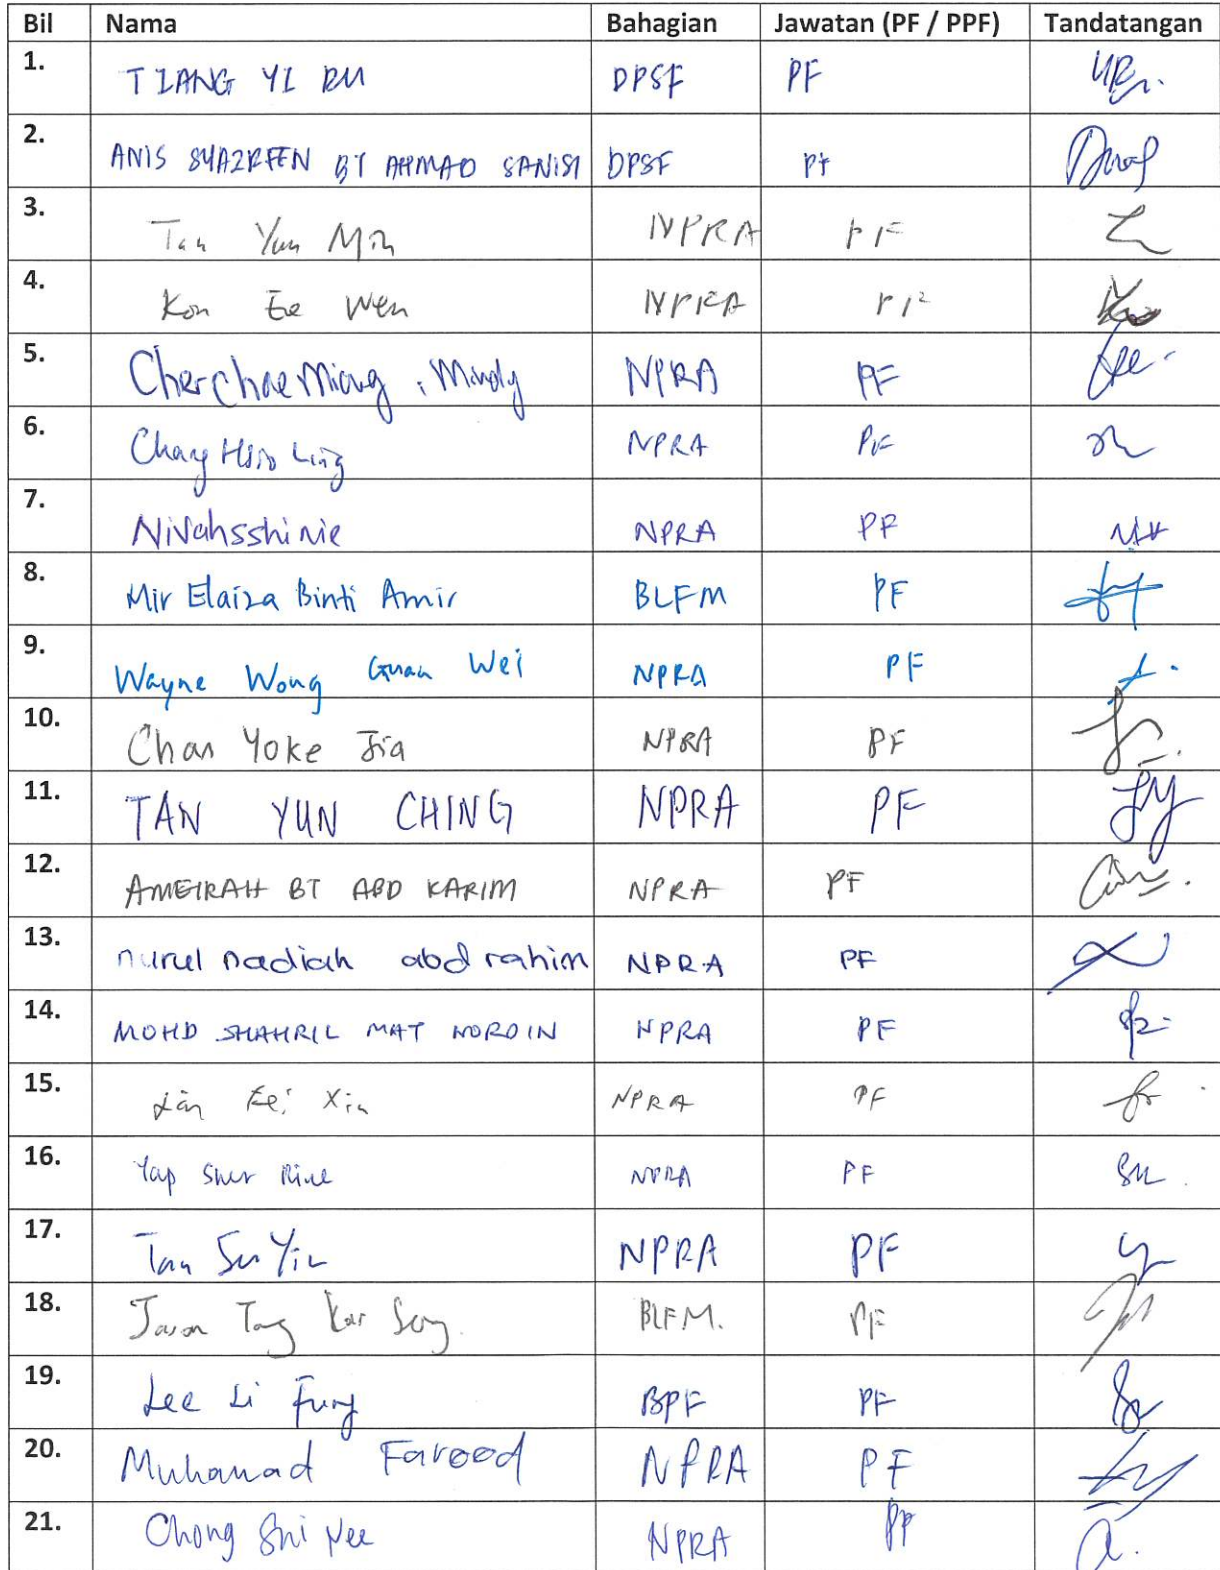 Bil Nama Bahagian Jawatan (PF / PPF) Tandatangan
1. TIANG YI RU DPSF PF
2. ANIS SYAZREEN BT AHMAD SANISI DPSF PF
3. Tan Yun Min NPRA PF
4. Kon Ee Wen NPRA PF
5. Cher Chae Miang, Mindy NPRA PF
6. Chang Hsio Ling NPRA PF
7. Nivahsshinie NPRA PF
8. Mir Elaiza Binti Amir BLFM PF
9. Wayne Wong Guan Wei NPRA PF
10. Chan Yoke Jia NPRA PF
11. TAN YUN CHING NPRA PF
12. AMEIRAH BT ABD KARIM NPRA PF
13. nurul nadiah abd rahim NPRA PF
14. MOHD SHAHRIL MAT NORDIN NPRA PF
15. Xin NPRA PF
16. Yap Sher NPRA PF
17. Tan Su Yin NPRA PF
18. Jason Tang Kar BLFM. PF
19. Lee Li Fung BPF PF
20. Muhamad Farood NPRA PF
21. Chong Shi Nee NPRA PF